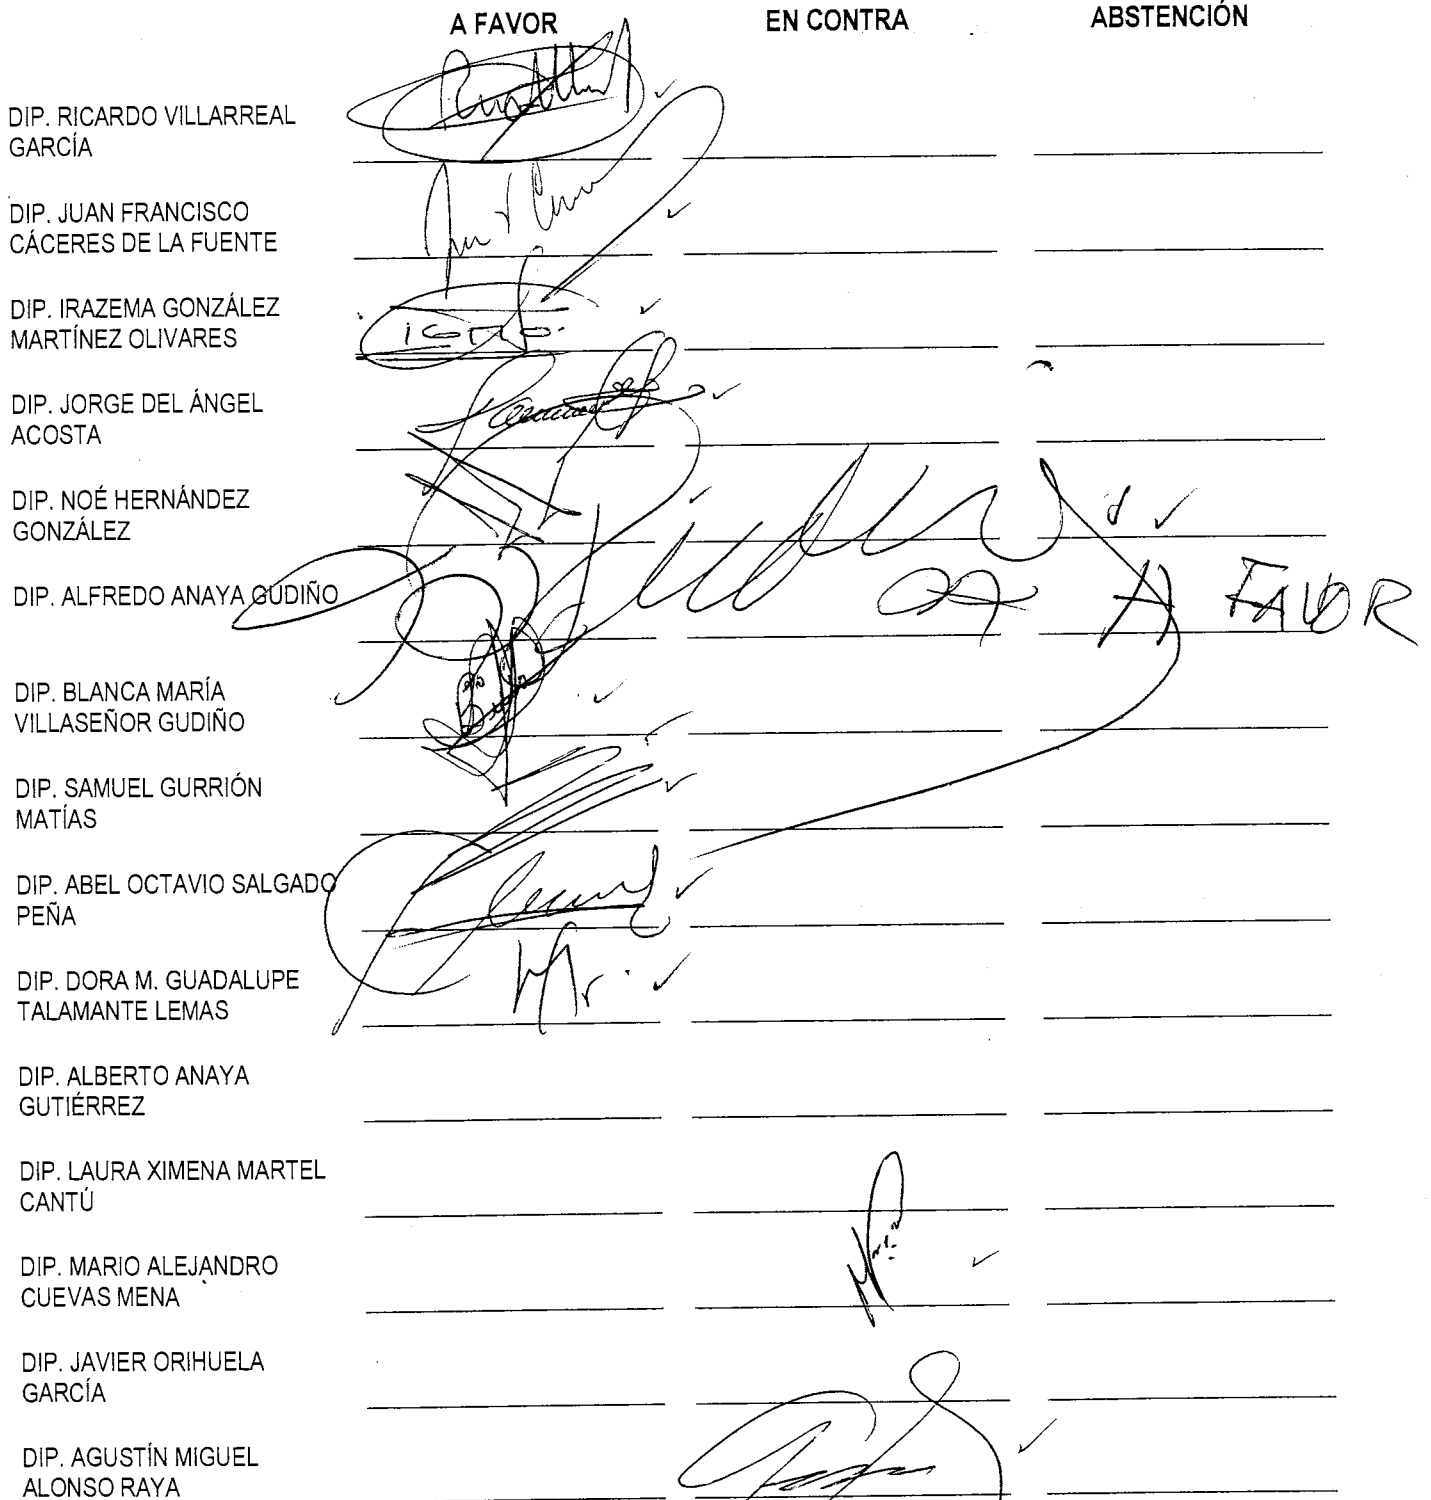 A FAVOR EN CONTRA ABSTENCIÓN
DIP. RICARDO VILLARREAL
GARCÍA
DIP. JUAN FRANCISCO
CÁCERES DE LA FUENTE
DIP. IRAZEMA GONZÁLEZ
MARTÍNEZ OLIVARES
DIP. JORGE DEL ÁNGEL
ACOSTA
DIP. NOÉ HERNÁNDEZ
GONZÁLEZ
DIP. ALFREDO ANAYA GUDIÑO
A FAVOR
DIP. BLANCA MARÍA
VILLASEÑOR GUDIÑO
DIP. SAMUEL GURRIÓN
MATÍAS
DIP. ABEL OCTAVIO SALGADO
PEÑA
DIP. DORA M. GUADALUPE
TALAMANTE LEMAS
DIP. ALBERTO ANAYA
GUTIÉRREZ
DIP. LAURA XIMENA MARTEL
CANTÚ
DIP. MARIO ALEJANDRO
CUEVAS MENA
DIP. JAVIER ORIHUELA
GARCÍA
DIP. AGUSTÍN MIGUEL
ALONSO RAYA